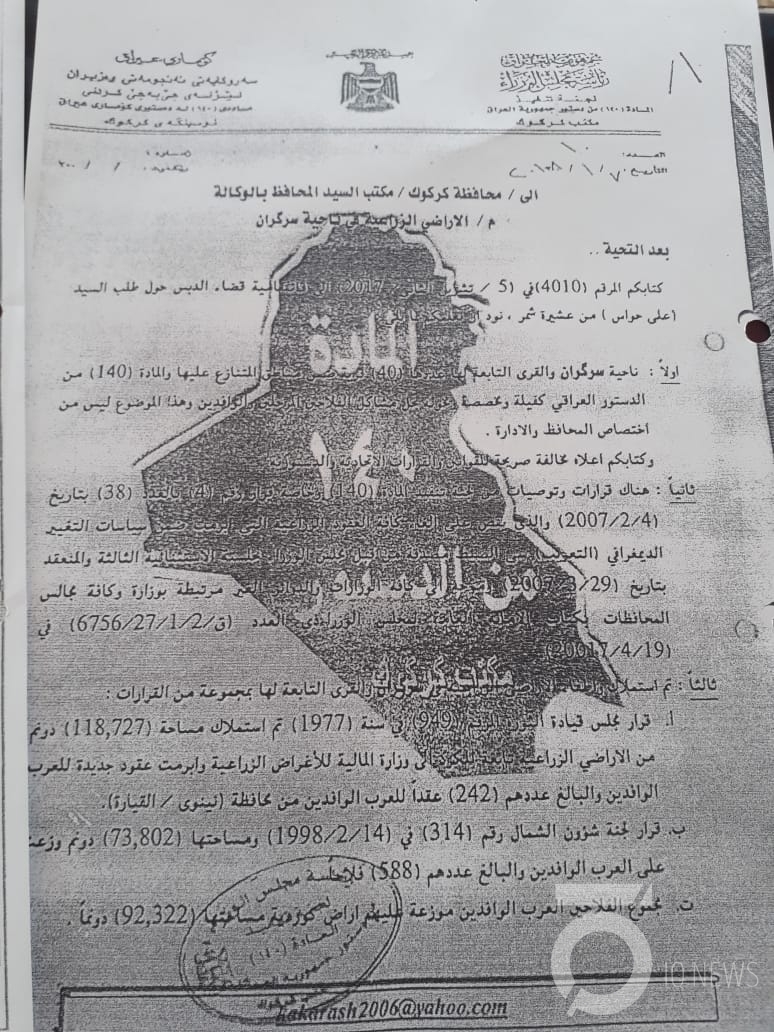 جمهورية العراق
رئاسة مجلس الوزراء
لجنة تنفيذ
المادة (١٤٠) من دستور جمهورية العراق
مكتب كركوك
كۆماری عیراق
سەرۆکایەتی ئەنجومەنی وەزیران
لیژنەی جێ بەجێ کردنی
ماددەی (١٤٠) لە دەستوری کۆماری عیراق
نوسینگەی کرکوك
العدد:
التاريخ:
الى / محافظة كركوك / مكتب السيد المحافظ بالوكالة
م / الاراضي الزراعية في ناحية سرگران
بعد التحية ..
كتابكم المرقم (4010) في (5 / تشرين الثاني / 2017) الى قائمقامية قضاء الدبس حول طلب السيد
(على حواس) من عشيرة شمر ، نود ان
اولاً : ناحية سرگران والقرى التابعة لها (40) المتنازع عليها والمادة (140) من
الدستور العراقي كفيلة ومخصصة حل مشاكل الفلاحين الوافدين وهذا الموضوع ليس من
أختصاص المحافظ والادارة .
وكتابكم اعلاه مخالفة صريحة للقوانين والقرارات الاتحادية والدستورية
ثانياً : هناك قرارات وتوصيات من لجنة تنفيذ المادة (140) وخاصة قرار رقم (4) بالعدد (38) بتاريخ
(2007/2/4) والذي ينص على الغاء كافة العقود الزراعية التي ابرمت ضمن سياسات التغيير
الديمغرافي (التعريب) من قبل مجلس الوزراء بجلسته الاستثنائية الثالثة والمنعقد
بتاريخ (2007/3/29) كافة الوزارات والدوائر الغير مرتبطة بوزارة وكافة مجالس
المحافظات بكتاب الامانة العامة لمجلس الوزراء ذي العدد (ق/2/1/27/6756) في
(20017/4/19)
ثالثاً : تم استملاك سرگران والقرى التابعة لها بمجموعة من القرارات :
أ. قرار مجلس قيادة الثورة المرقم (949) في سنة (1977) تم استملاك مساحة (118,727) دونم
من الاراضي الزراعية الى وزارة المالية للأغراض الزراعية وابرمت عقود جديدة للعرب
الوافدين والبالغ عددهم (242) عقداً للعرب الوافدين من محافظة (نينوى / القيارة).
ب. قرار لجنة شؤون الشمال رقم (314) في (1998/2/14) ومساحتها (73,802) دونم وزعت
على العرب الوافدين والبالغ عددهم (588) فلاحاً
ت. مجموع الفلاحين العرب الوافدين موزعة عليهم اراضي كوردية مساحتها (92,322) دونماً .
المادة
١٤٠
من الدستور
مكتب كركوك
hakarash2006@yahoo.com
IQ NEWS